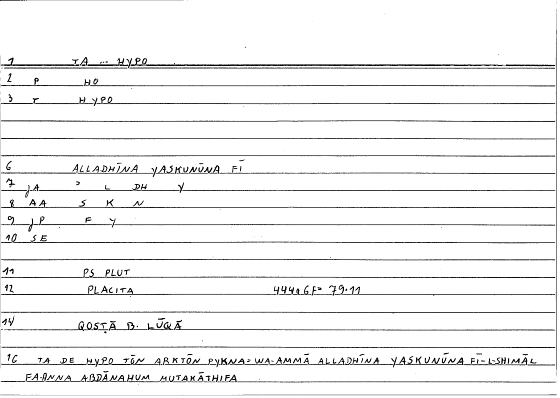 1 TA ... HYPO
2 P HO
3 T HYPO
6 ALLADHĪNA YASKUNŪNA FĪ
7 JA ʾ L DH Y
8 AA S K N
9 JP F Y
10 SE
11 PS PLUT
12 PLACITA 444a6F= 79.11
14 QOSṬĀ B. LŪQĀ
16 TA DE HYPO TŌN ARKTŌN PYKNA= WA-AMMĀ ALLADHĪNA YASKUNŪNA FĪ-L-SHIMĀL
FA-ANNA ABDĀNAHUM MUTAKĀTHIFA